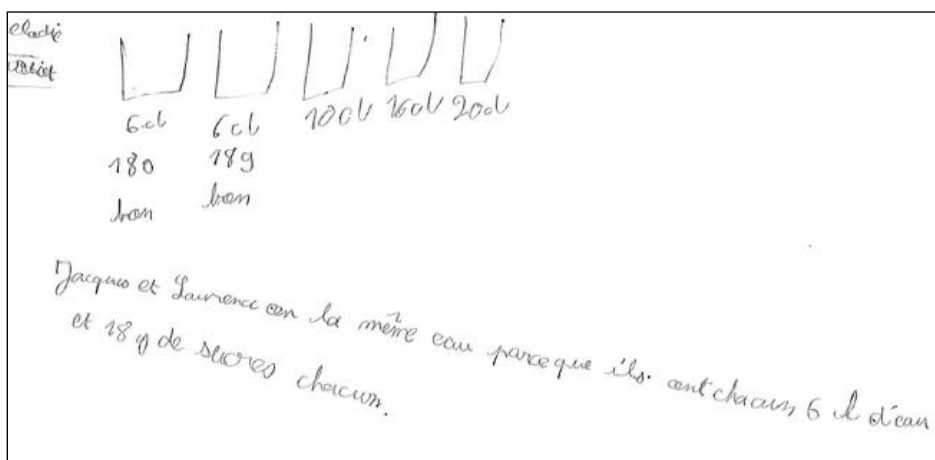 elodie
6 cl 6 cl 10 cl 16 cl 20 cl
180 18g
bon bon
Jacques et Laurence on la même eau parceque ils. ont chacun 6 l d'eau
et 18 g de sucres chacun.